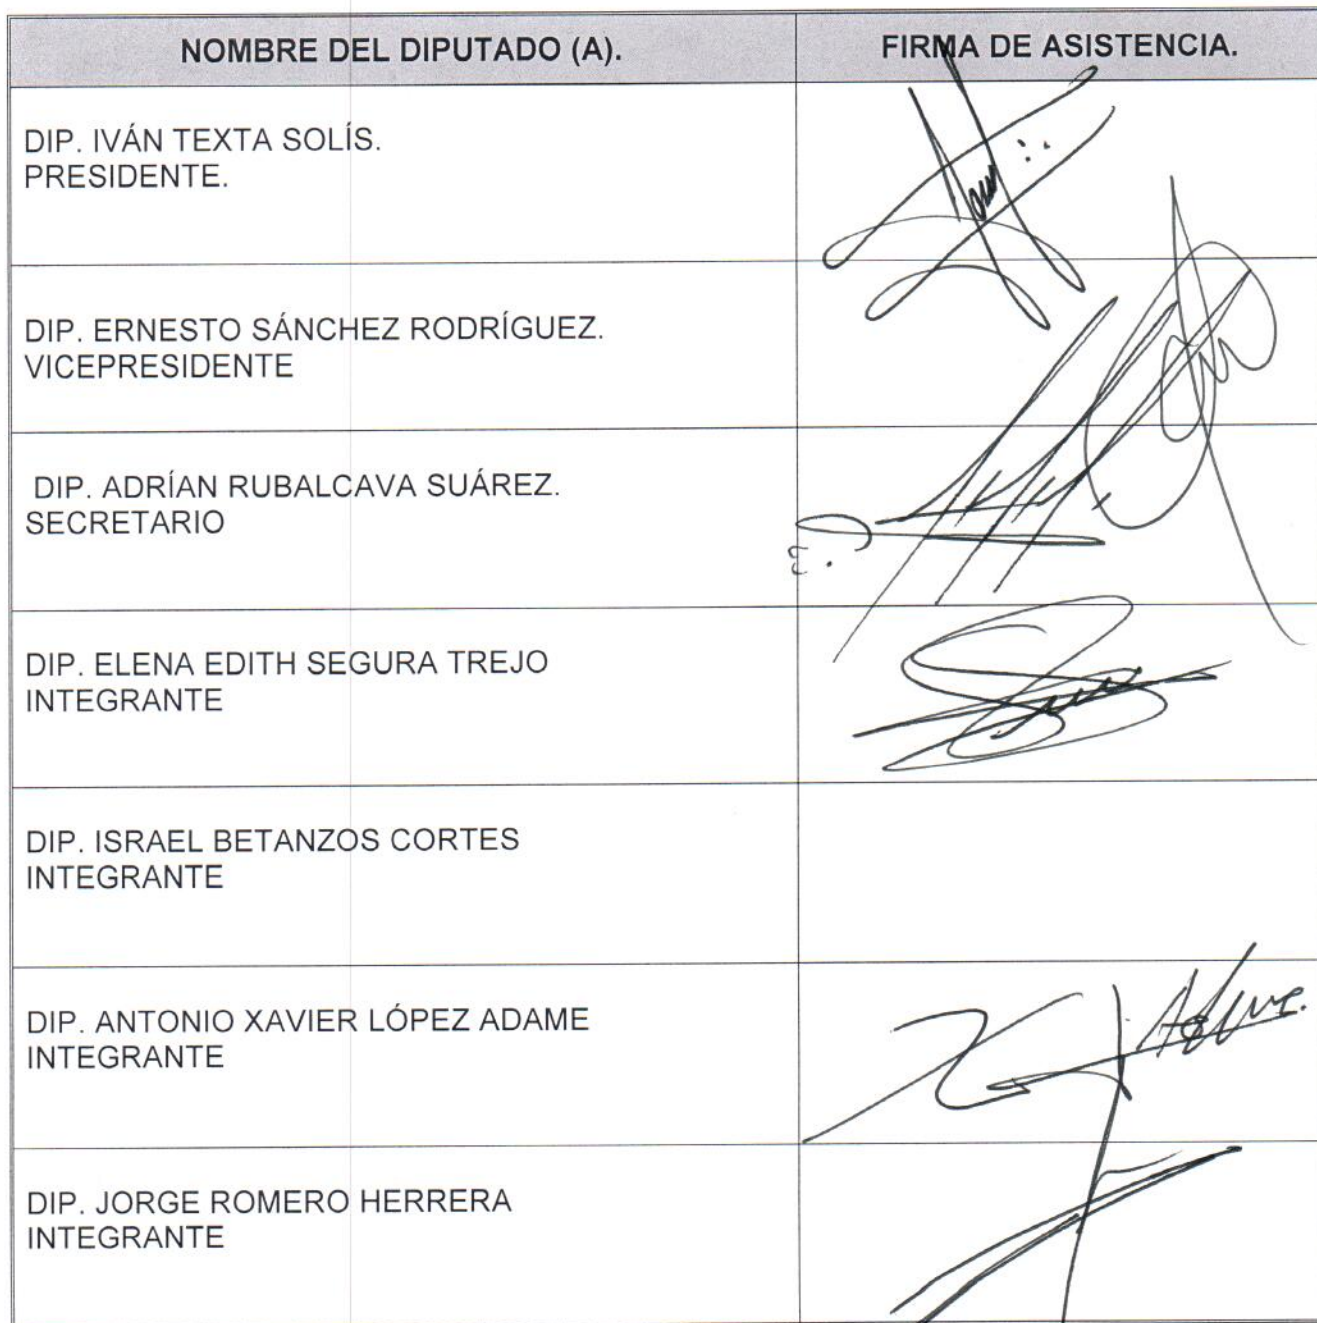 NOMBRE DEL DIPUTADO (A).
FIRMA DE ASISTENCIA.
DIP. IVÁN TEXTA SOLÍS.
PRESIDENTE.
DIP. ERNESTO SÁNCHEZ RODRÍGUEZ.
VICEPRESIDENTE
DIP. ADRÍAN RUBALCAVA SUÁREZ.
SECRETARIO
DIP. ELENA EDITH SEGURA TREJO
INTEGRANTE
DIP. ISRAEL BETANZOS CORTES
INTEGRANTE
DIP. ANTONIO XAVIER LÓPEZ ADAME
INTEGRANTE
DIP. JORGE ROMERO HERRERA
INTEGRANTE